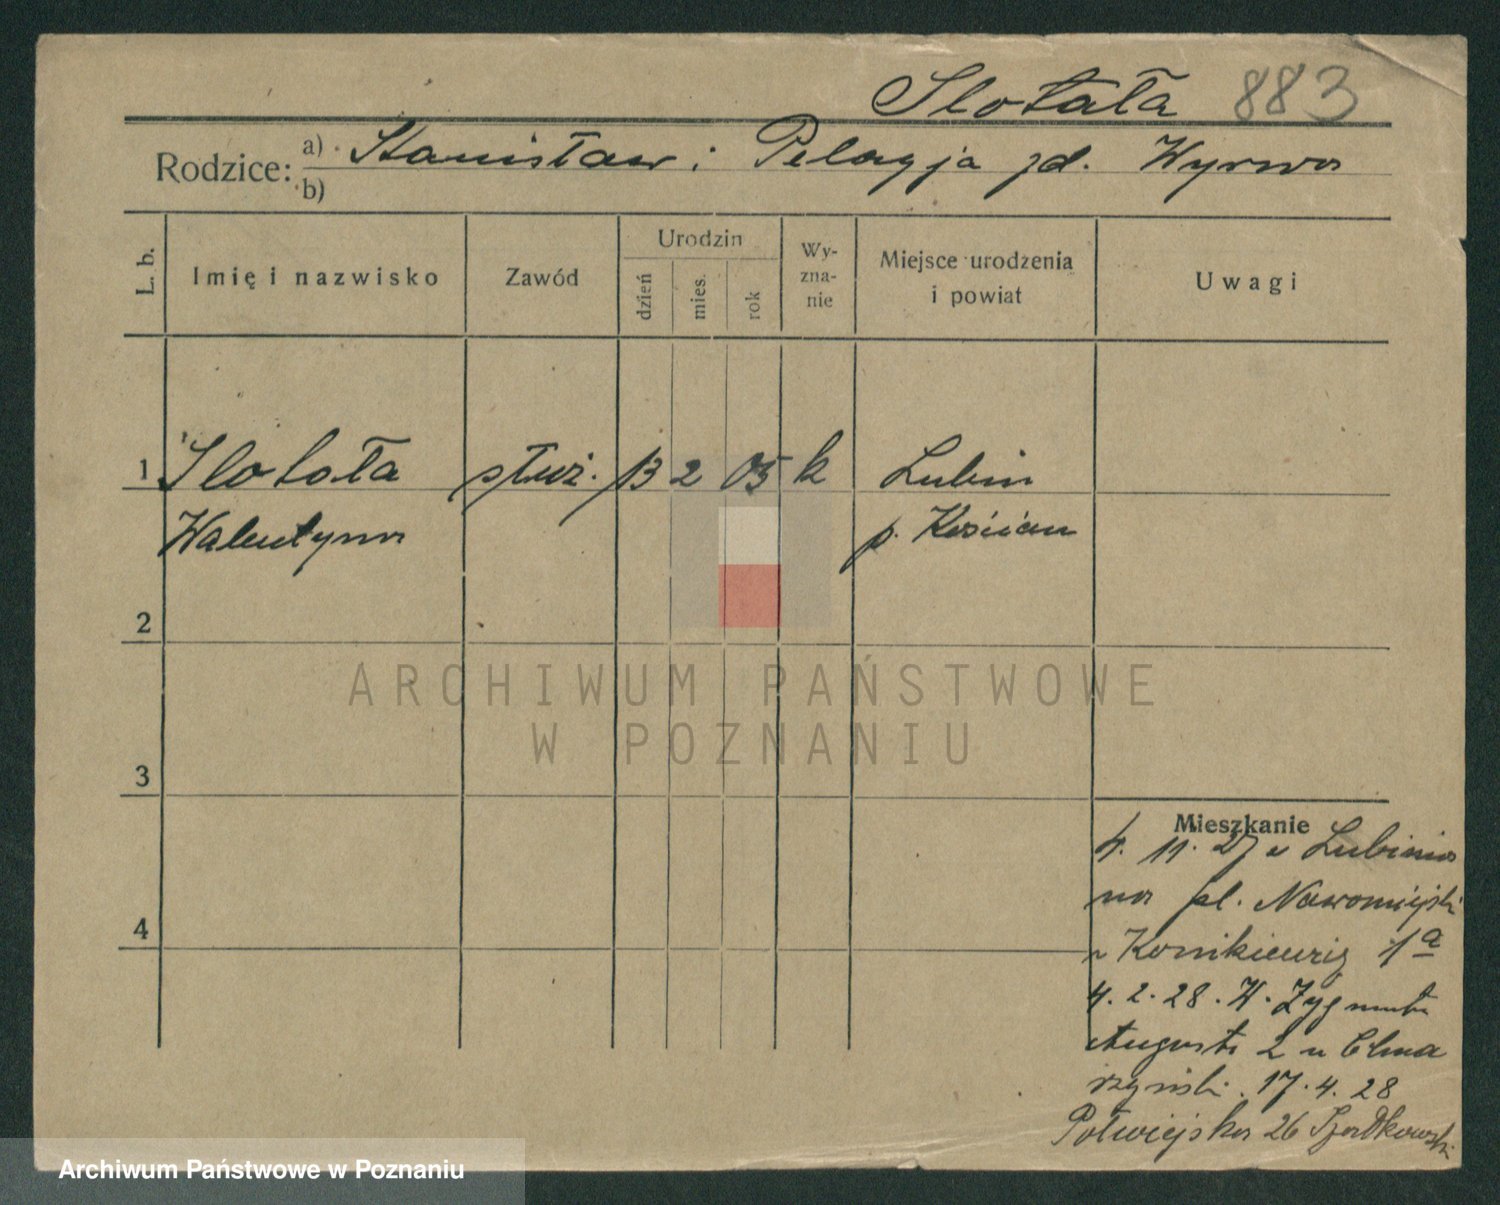 Slotała 883
Rodzice: a) Stanisław i Pelagja zd. Wyrwa
b)
L. b. Imię i nazwisko Zawód Urodzin dzień mies. rok Wy-zna-nie Miejsce urodzenia i powiat Uwagi
1 Slotała służ. 13 2 05 k Lubin
Walentyna p. Kościan
2
ARCHIWUM PAŃSTWOWE
W POZNANIU
3
4
Mieszkanie
4. 11. 27 z Lubinia
na pl. Nowomiejski
1a
4. 2. 28. W. Zygmunta
Augusta 2 u Chma
rzyński. 17. 4. 28
Półwiejska 26
Archiwum Państwowe w Poznaniu